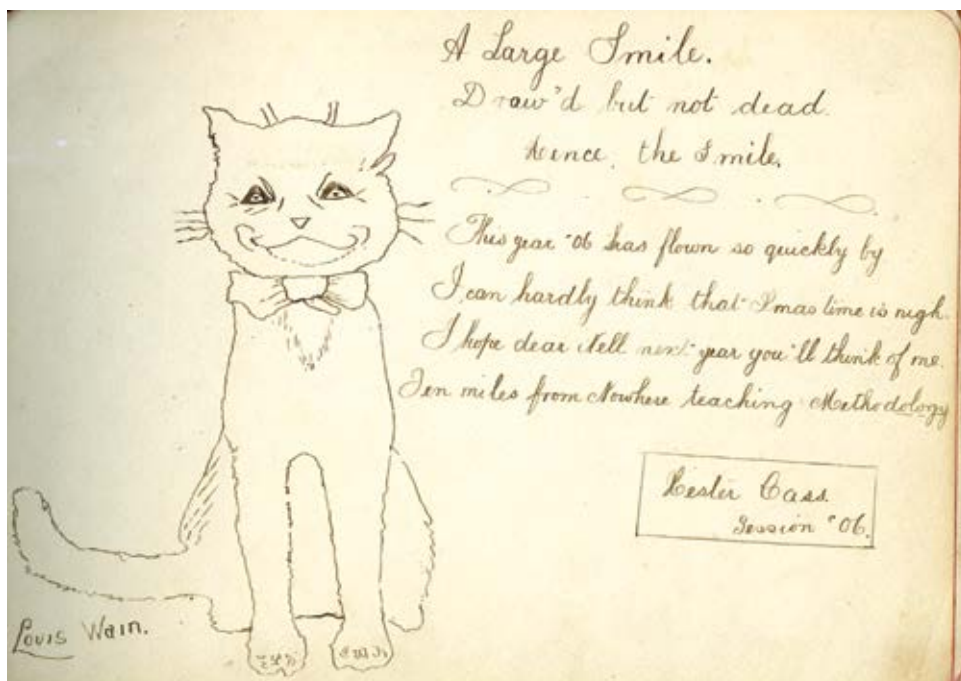 A Large Smile.
Draw'd but not dead.
Hence, the Smile.
This year '06 has flown so quickly by
I can hardly think that Xmas time is nigh.
I hope dear Nell next year you'll think of me.
Ten miles from Nowhere teaching Methodology
Hester Cass.
Session '06.
Louis Wain.